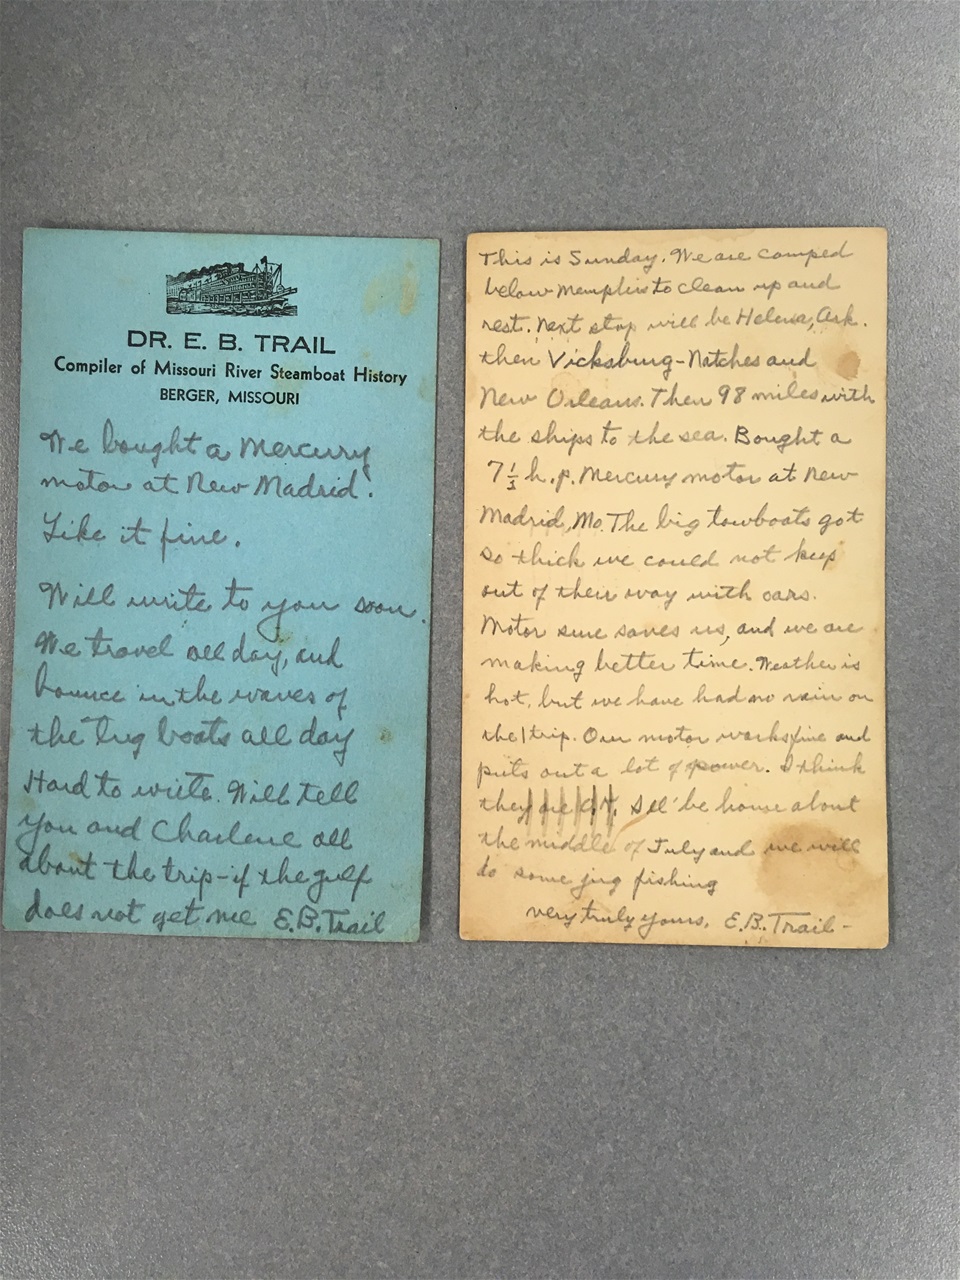 DR. E. B. TRAIL
Compiler of Missouri River Steamboat History
BERGER, MISSOURI
We bought a Mercury
motor at New Madrid.
Like it fine.
Will write to you soon.
We travel all day, and
bounce in the waves of
the big boats all day
Hard to write. Will tell
you and Charlene all
about the trip - if the gulf
does not get me E.B. Trail
This is Sunday. We are camped
below Memphis to clean up and
rest. Next stop will be Helena, Ark.
then Vicksburg - Natches and
New Orleans. Then 98 miles with
the ships to the sea. Bought a
7 1/2 h.p. Mercury motor at New
Madrid, Mo. The big towboats got
so thick we could not keep
out of their way with oars.
Motor sure saves us, and we are
making better time. Weather is
hot, but we have had no rain on
the trip. Our motor works fine and
puts out a lot of power. I think
they are I'll be home about
the middle of July and we will
do some jug fishing
very truly yours, E.B. Trail -